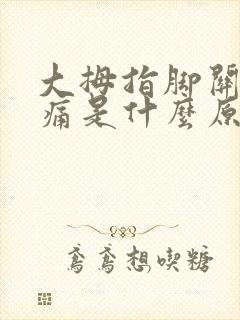 大拇指脚關
痛是什麼原
鸢鸢想喫糖